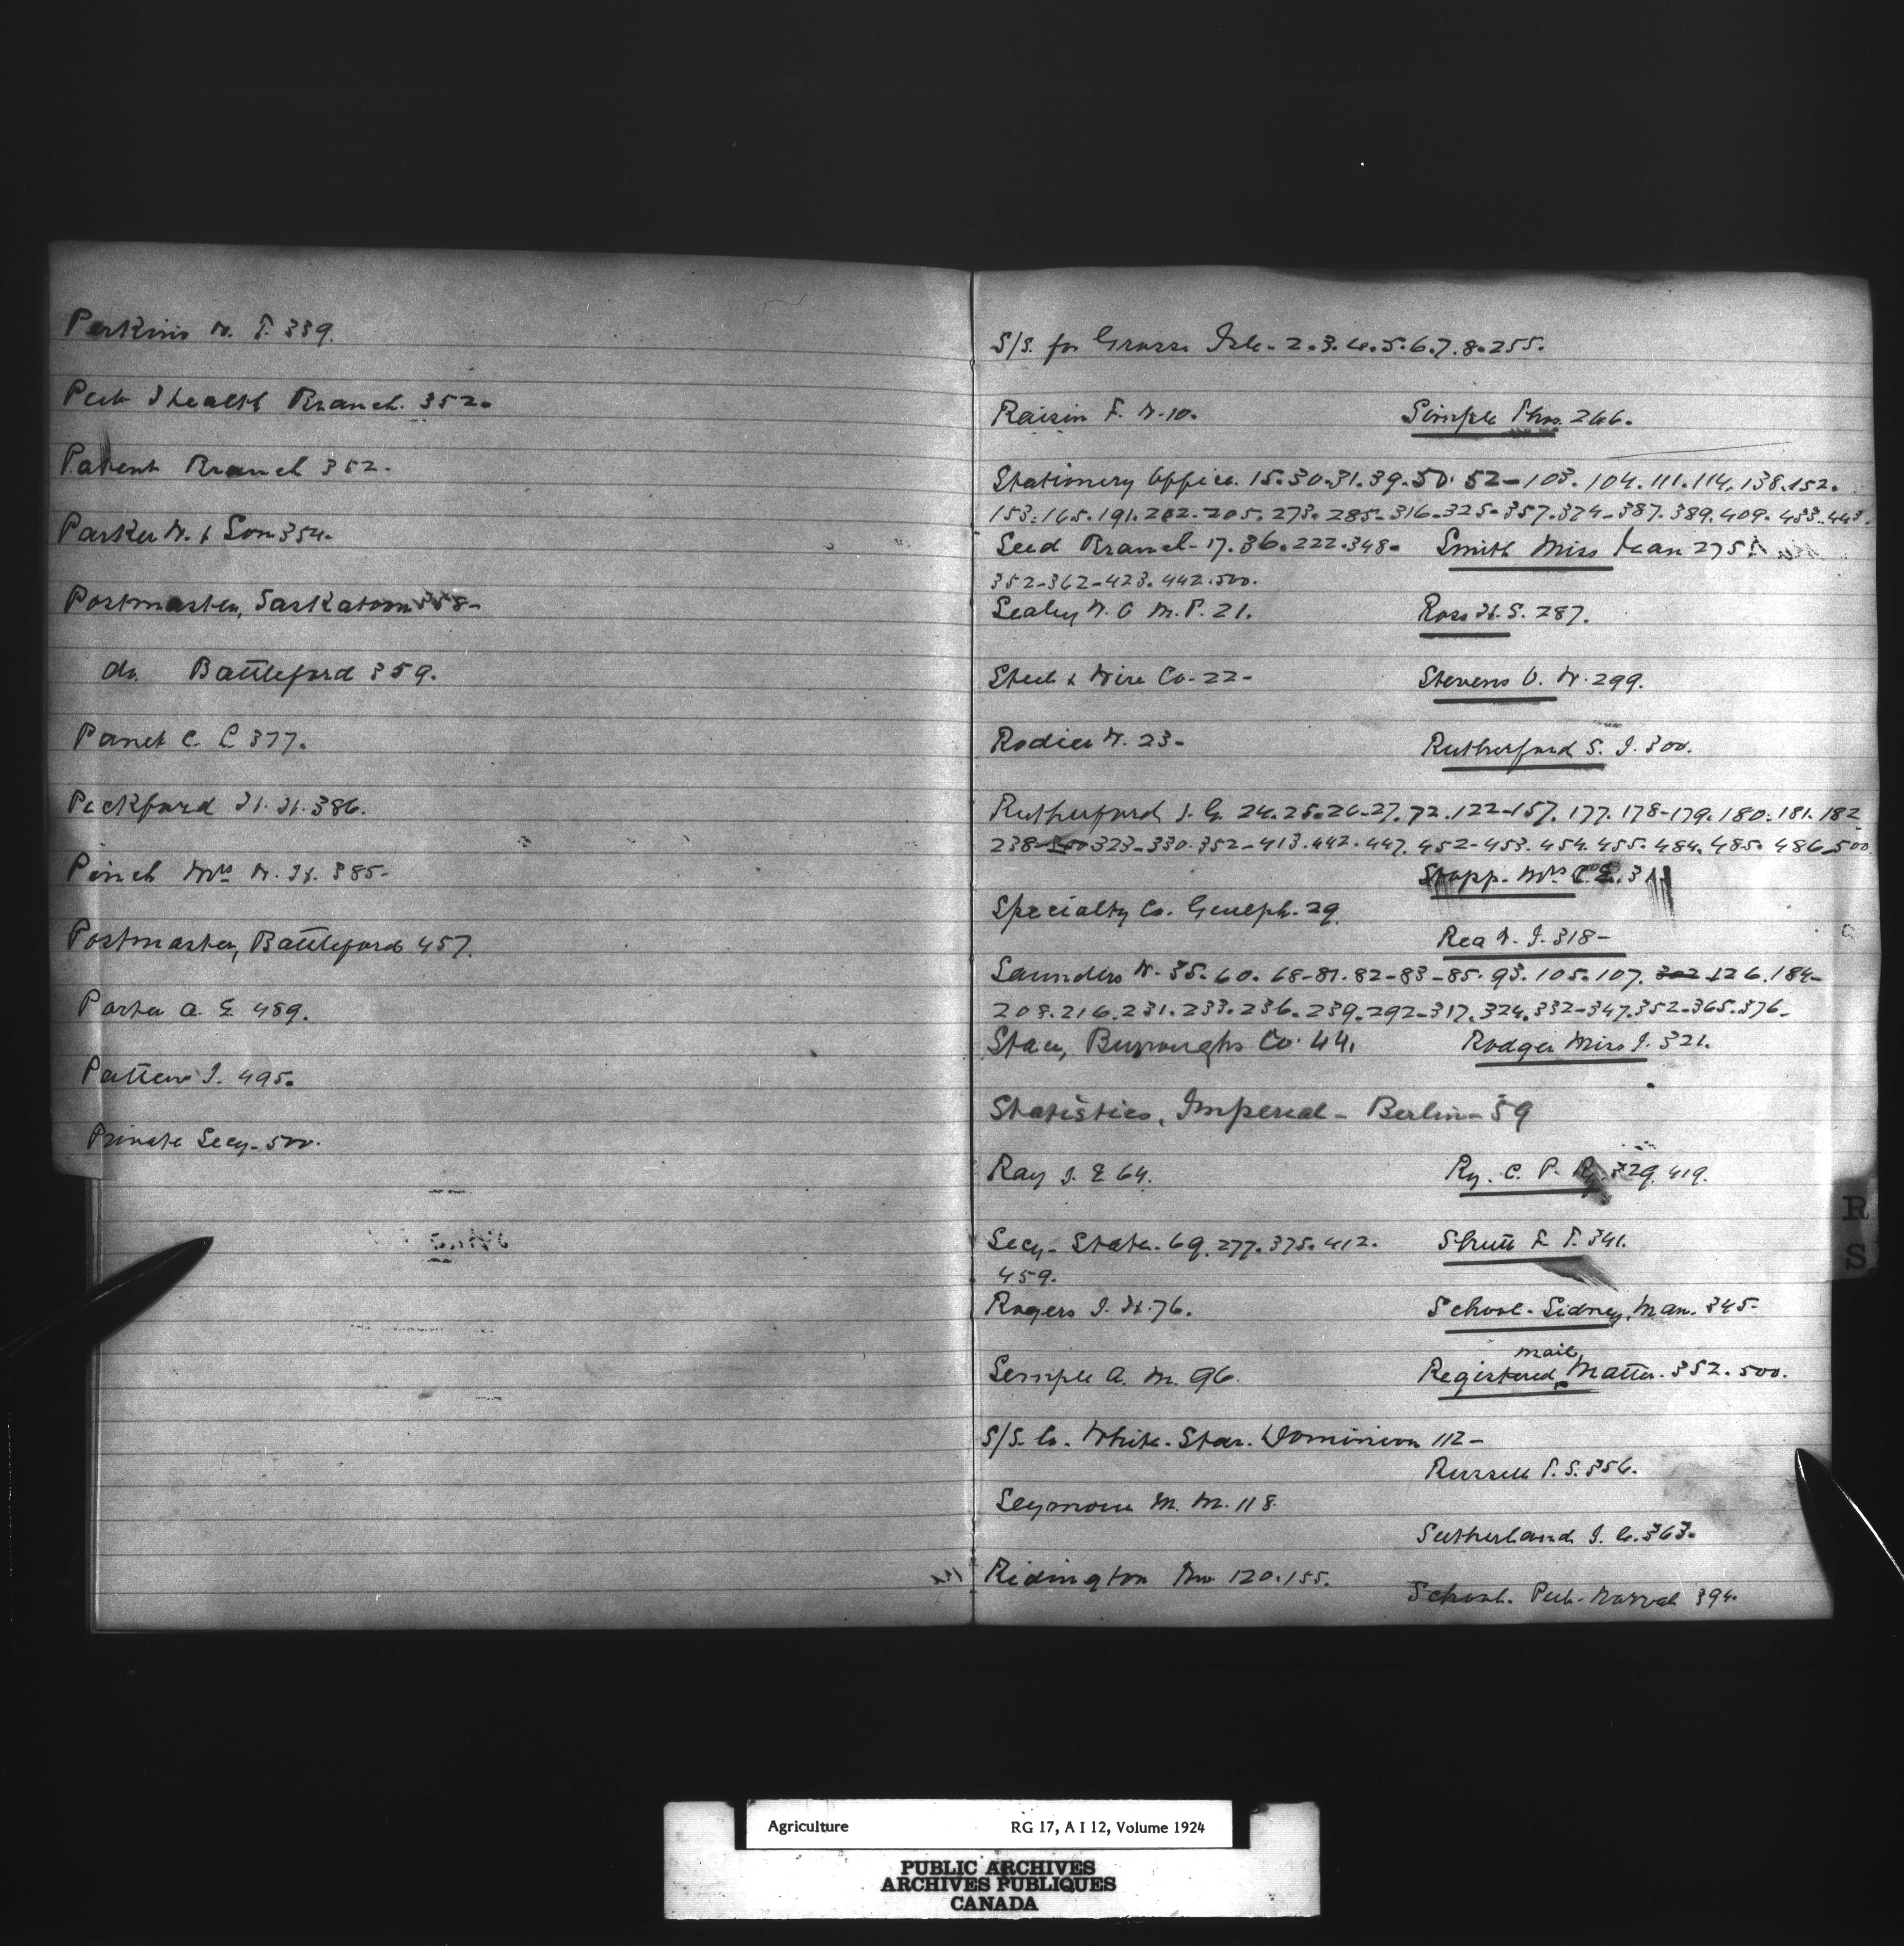 Perkins W. T. 339.
Pub Health Branch. 352.
Patent Branch 352.
Parker W. & Son 354.
Postmaster, Saskatoon 358-
do. Battleford 359.
Panet C. L 377.
Pickford H. H. 386.
Pinch Mrs W. H. 385-
Postmaster, Battleford 457.
Porter A. E. 489.
Patten J. 495.
Private Secy- 500.
S/S. for Grosse Isle- 2.3.4.5.6.7.8.255.
Raisin F. W. 10. Simple Thos. 266.
Stationery Office. 15.30.31.39.50. 52-103. 104.111.114.138.152.
153.165.191.202-205.273.285-316-325-357.374-387.389.409.433.443.
Seed Branch- 17.36.222.348- Smith Miss Jean 275
352-362-423.442.500.
Sealey W. O M.P. 21. Ross H. S. 287.
Steel & Wire Co- 22- Stevens O. W. 299.
Rodier W. 23- Rutherford S. J. 300.
Rutherford J. G. 24.25.26-27.72.122-157.177.178-179.180.181.182
238-300 323-330.352-413.442.447.452-453.454.455.484.485.486.500.
Stopp- Mrs C. E. 311
Specialty Co. Guelph. 29.
Rea W. J. 318-
Saunders W. 35.60. 68-81.82-83-85.93.105.107. 302 126.184-
208.216.231.233.236.239.292-317.324.332-347.352-365.376-
Stau, Burroughs Co. 44. Rodger Miss J. 321.
Statistics, Imperial- Berlin- 59
Ray J. E 64. Ry. C. P. Ry. 329. 419.
Secy- State. 69.277.375.412. Shutt F. T. 341.
459.
Rogers J. H. 76. School- Sidney, Man. 345-
mail
Semple A. M. 96. Registered Matter. 352.500.
S/S- Co. White. Star. Dominion 112-
Russell T. S. 356.
Seymour M. M. 118.
Sutherland J. C. 363.
Ridington Mr 120.155.
School. Pub- Norval 394.
R
S
Agriculture RG 17, A I 12, Volume 1924
PUBLIC ARCHIVES
ARCHIVES PUBLIQUES
CANADA